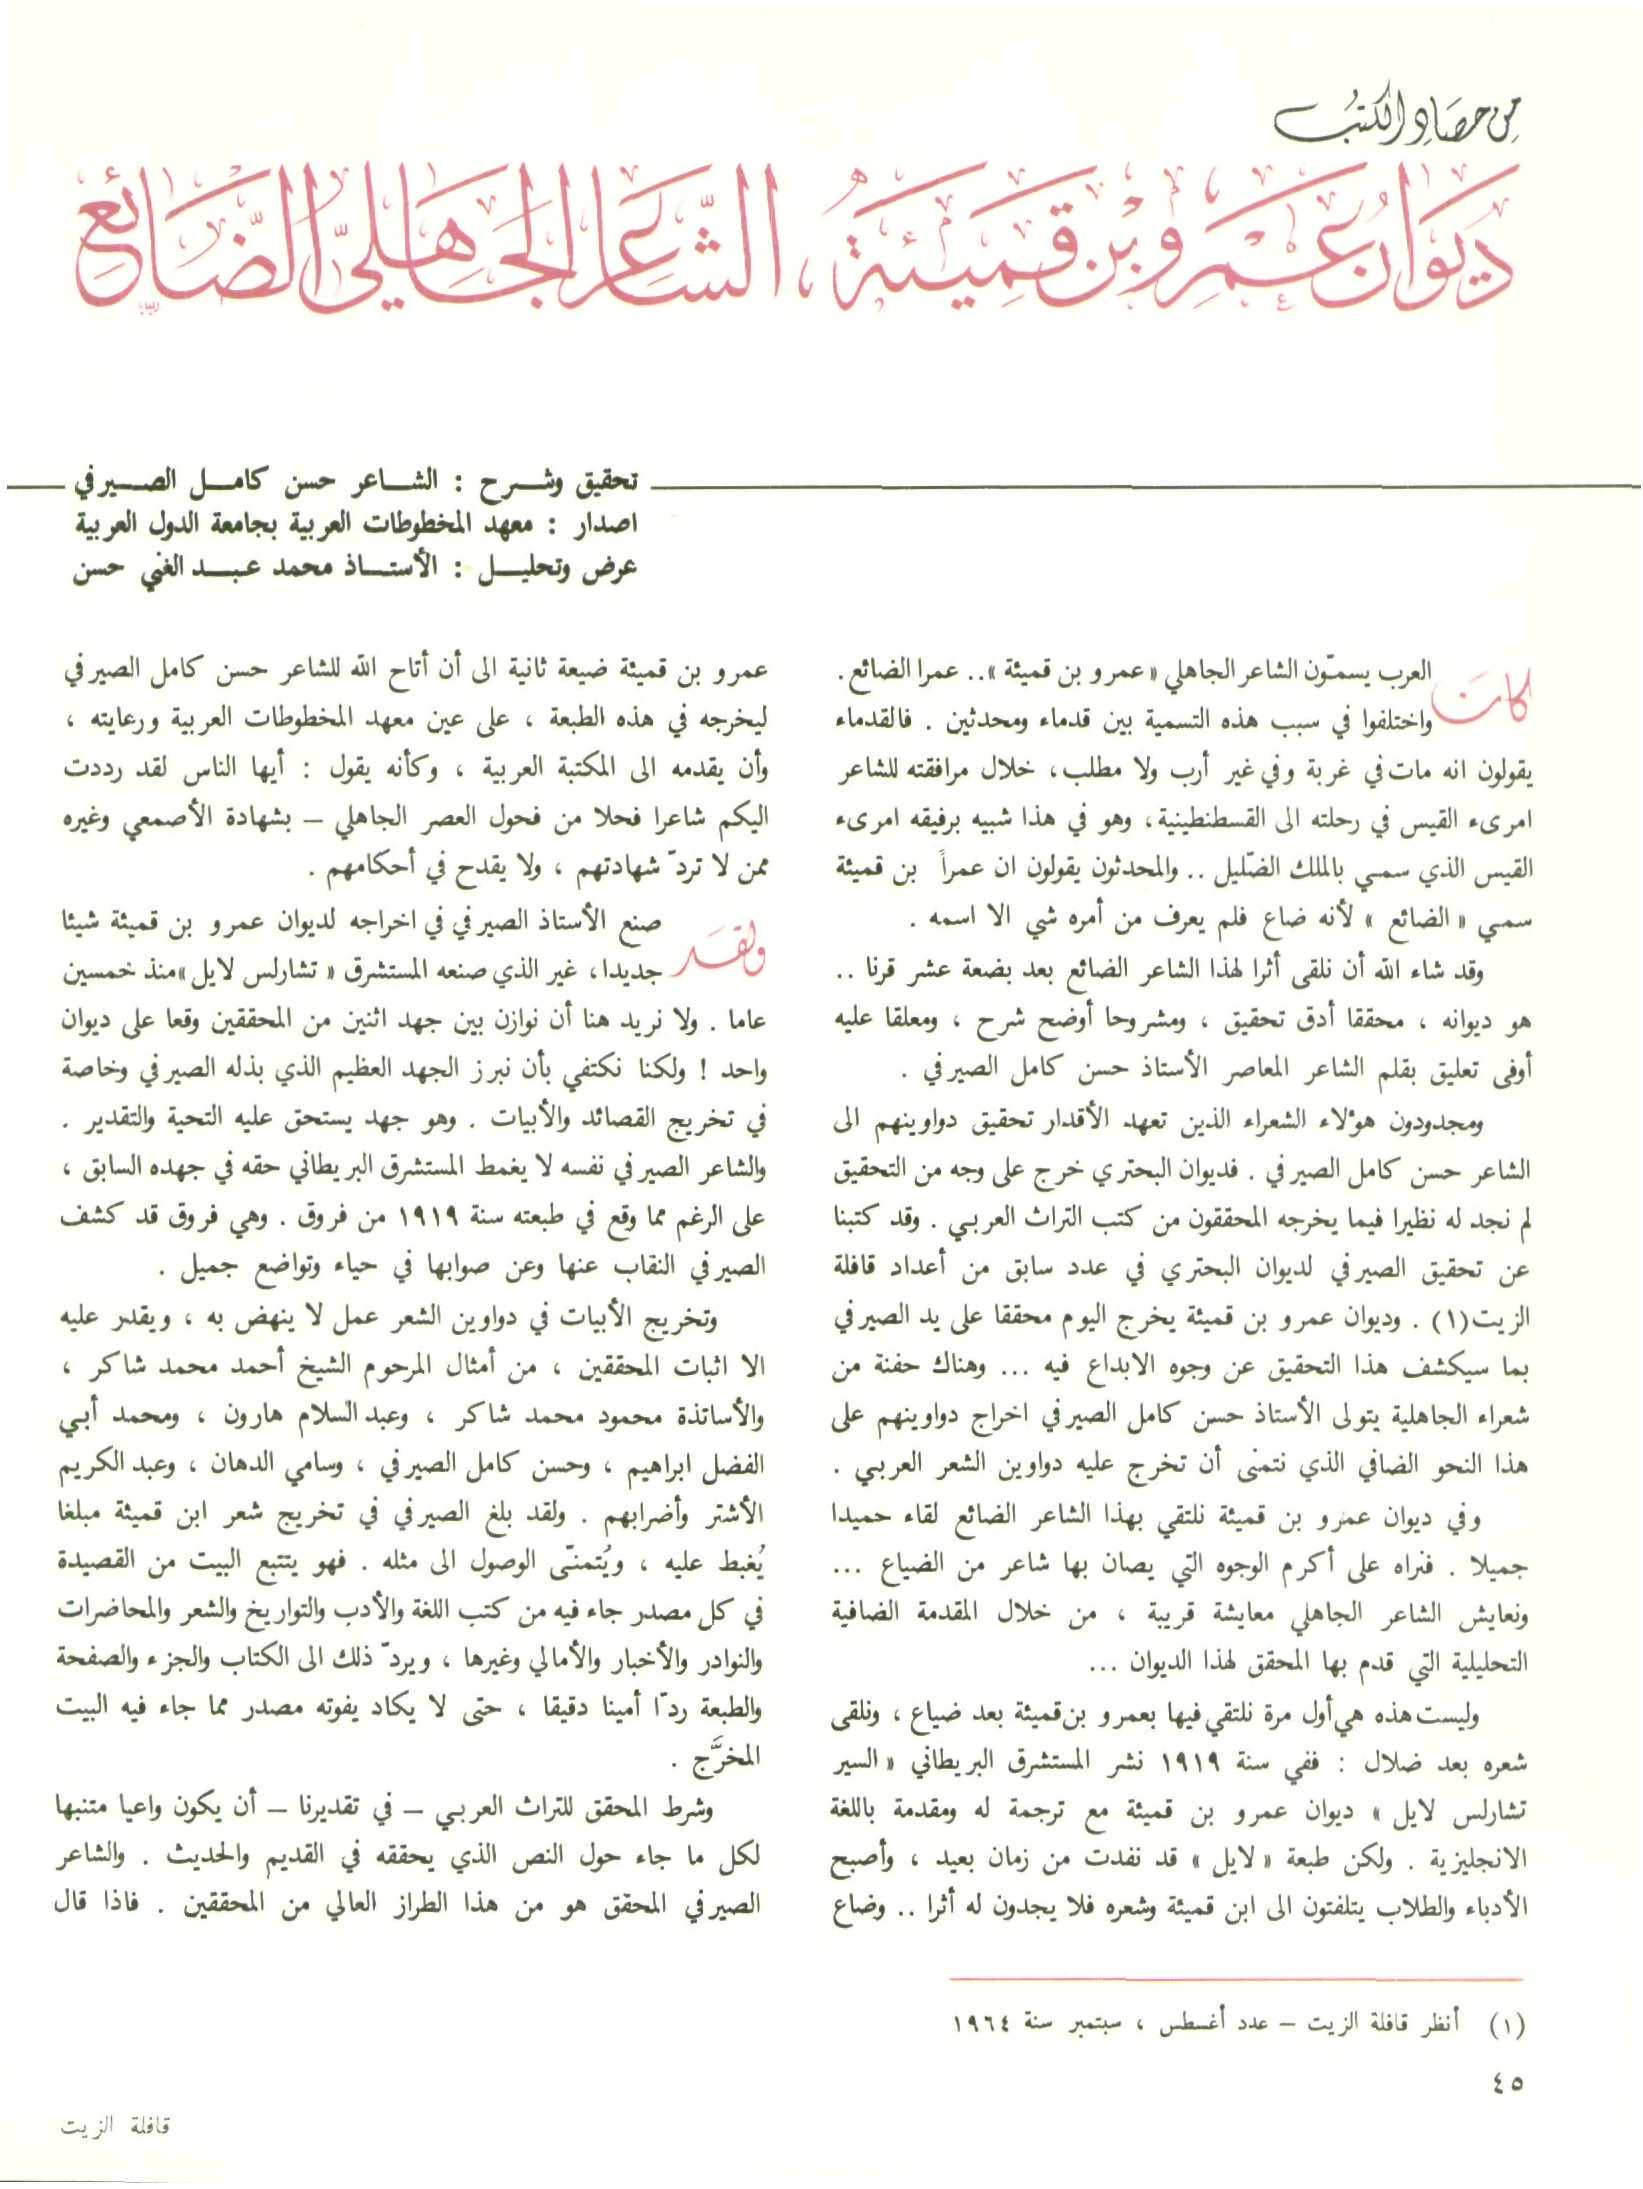 من حصاد الكتب
ديوان عمرو بن قميئة، الشاعر الجاهلي الضائع
تحقيق وشرح : الشاعر حسن كامل الصيرفي
اصدار : معهد المخطوطات العربية بجامعة الدول العربية
عرض وتحليل : الأستاذ محمد عبد الغني حسن
كان العرب يسمّون الشاعر الجاهلي « عمرو بن قميئة ».. عمرا الضائع .
واختلفوا في سبب هذه التسمية بين قدماء ومحدثين . فالقدماء
يقولون انه مات في غربة وفي غير أرب ولا مطلب، خلال مرافقته للشاعر
امرىء القيس في رحلته الى القسطنطينية، وهو في هذا شبيه برفيقه امرىء
القيس الذي سمي بالملك الضّليل .. والمحدثون يقولون ان عمراً بن قميئة
سمي « الضائع » لأنه ضاع فلم يعرف من أمره شي الا اسمه .
وقد شاء الله أن نلقى أثرا لهذا الشاعر الضائع بعد بضعة عشر قرنا ..
هو ديوانه ، محققا أدق تحقيق ، ومشروحا أوضح شرح ، ومعلقا عليه
أوفى تعليق بقلم الشاعر المعاصر الأستاذ حسن كامل الصيرفي .
ومجدودون هؤلاء الشعراء الذين تعهد الأقدار تحقيق دواوينهم الى
الشاعر حسن كامل الصيرفي . فديوان البحتري خرج على وجه من التحقيق
لم نجد له نظيرا فيما يخرجه المحققون من كتب التراث العربي . وقد كتبنا
عن تحقيق الصيرفي لديوان البحتري في عدد سابق من أعداد قافلة
الزيت(١) . وديوان عمرو بن قميئة يخرج اليوم محققا على يد الصيرفي
بما سيكشف هذا التحقيق عن وجوه الابداع فيه ... وهناك حفنة من
شعراء الجاهلية يتولى الأستاذ حسن كامل الصيرفي اخراج دواوينهم على
هذا النحو الضافي الذي نتمنى أن تخرج عليه دواوين الشعر العربي .
وفي ديوان عمرو بن قميئة نلتقي بهذا الشاعر الضائع لقاء حميدا
جميلا . فنراه على أكرم الوجوه التي يصان بها شاعر من الضياع ...
ونعايش الشاعر الجاهلي معايشة قريبة ، من خلال المقدمة الضافية
التحليلية التي قدم بها المحقق لهذا الديوان ...
وليست هذه هي أول مرة نلتقي فيها بعمرو بن قميئة بعد ضياع ، ونلقى
شعره بعد ضلال : ففي سنة ١٩١٩ نشر المستشرق البريطاني « السير
تشارلس لايل » ديوان عمرو بن قميئة مع ترجمة له ومقدمة باللغة
الانجليزية . ولكن طبعة « لايل » قد نفدت من زمان بعيد ، وأصبح
الأدباء والطلاب يتلفتون الى ابن قميئة وشعره فلا يجدون له أثرا .. وضاع
عمرو بن قميئة ضيعة ثانية الى أن أتاح الله للشاعر حسن كامل الصيرفي
ليخرجه في هذه الطبعة ، على عين معهد المخطوطات العربية ورعايته ،
وأن يقدمه الى المكتبة العربية ، وكأنه يقول : أيها الناس لقد رددت
اليكم شاعرا فحلا من فحول العصر الجاهلي – بشهادة الأصمعي وغيره
ممن لا تردّ شهادتهم ، ولا يقدح في أحكامهم .
ولقد صنع الأستاذ الصيرفي في اخراجه لديوان عمرو بن قميئة شيئا
جديدا، غير الذي صنعه المستشرق « تشارلس لايل »منذ خمسين
عاما . ولا نريد هنا أن نوازن بين جهد اثنين من المحققين وقعا على ديوان
واحد ! ولكنا نكتفي بأن نبرز الجهد العظيم الذي بذله الصيرفي وخاصة
في تخريج القصائد والأبيات . وهو جهد يستحق عليه التحية والتقدير .
والشاعر الصيرفي نفسه لا يغمط المستشرق البريطاني حقه في جهده السابق ،
على الرغم مما وقع في طبعته سنة ١٩١٩ من فروق . وهي فروق قد كشف
الصيرفي النقاب عنها وعن صوابها في حياء وتواضع جميل .
وتخريج الأبيات في دواوين الشعر عمل لا ينهض به ، ويقدر عليه
الا اثبات المحققين ، من أمثال المرحوم الشيخ أحمد محمد شاكر ،
والأساتذة محمود محمد شاكر ، وعبد السلام هارون ، ومحمد أبي
الفضل ابراهيم ، وحسن كامل الصيرفي ، وسامي الدهان ، وعبد الكريم
الأشتر وأضرابهم . ولقد بلغ الصيرفي في تخريج شعر ابن قميئة مبلغا
يُغبط عليه ، ويُتمنّى الوصول الى مثله . فهو يتتبع البيت من القصيدة
في كل مصدر جاء فيه من كتب اللغة والأدب والتواريخ والشعر والمحاضرات
والنوادر والأخبار والأمالي وغيرها ، ويردّ ذلك الى الكتاب والجزء والصفحة
والطبعة ردّا أمينا دقيقا ، حتى لا يكاد يفوته مصدر مما جاء فيه البيت
المخرَّج .
وشرط المحقق للتراث العربي – في تقديرنا – أن يكون واعيا متنبها
لكل ما جاء حول النص الذي يحققه في القديم والحديث . والشاعر
الصيرفي المحقق هو من هذا الطراز العالي من المحققين . فاذا قال
(١) أنظر قافلة الزيت – عدد أغسطس ، سبتمبر سنة ١٩٦٤
٤٥
قافلة الزيت